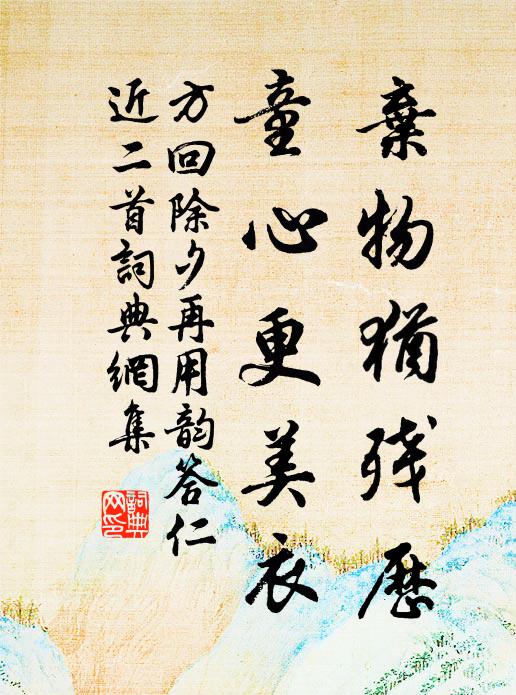 棄物猶殘曆
童心更美衣
方回除夕再用韵答仁
近二首詞典網集
詞典
网印